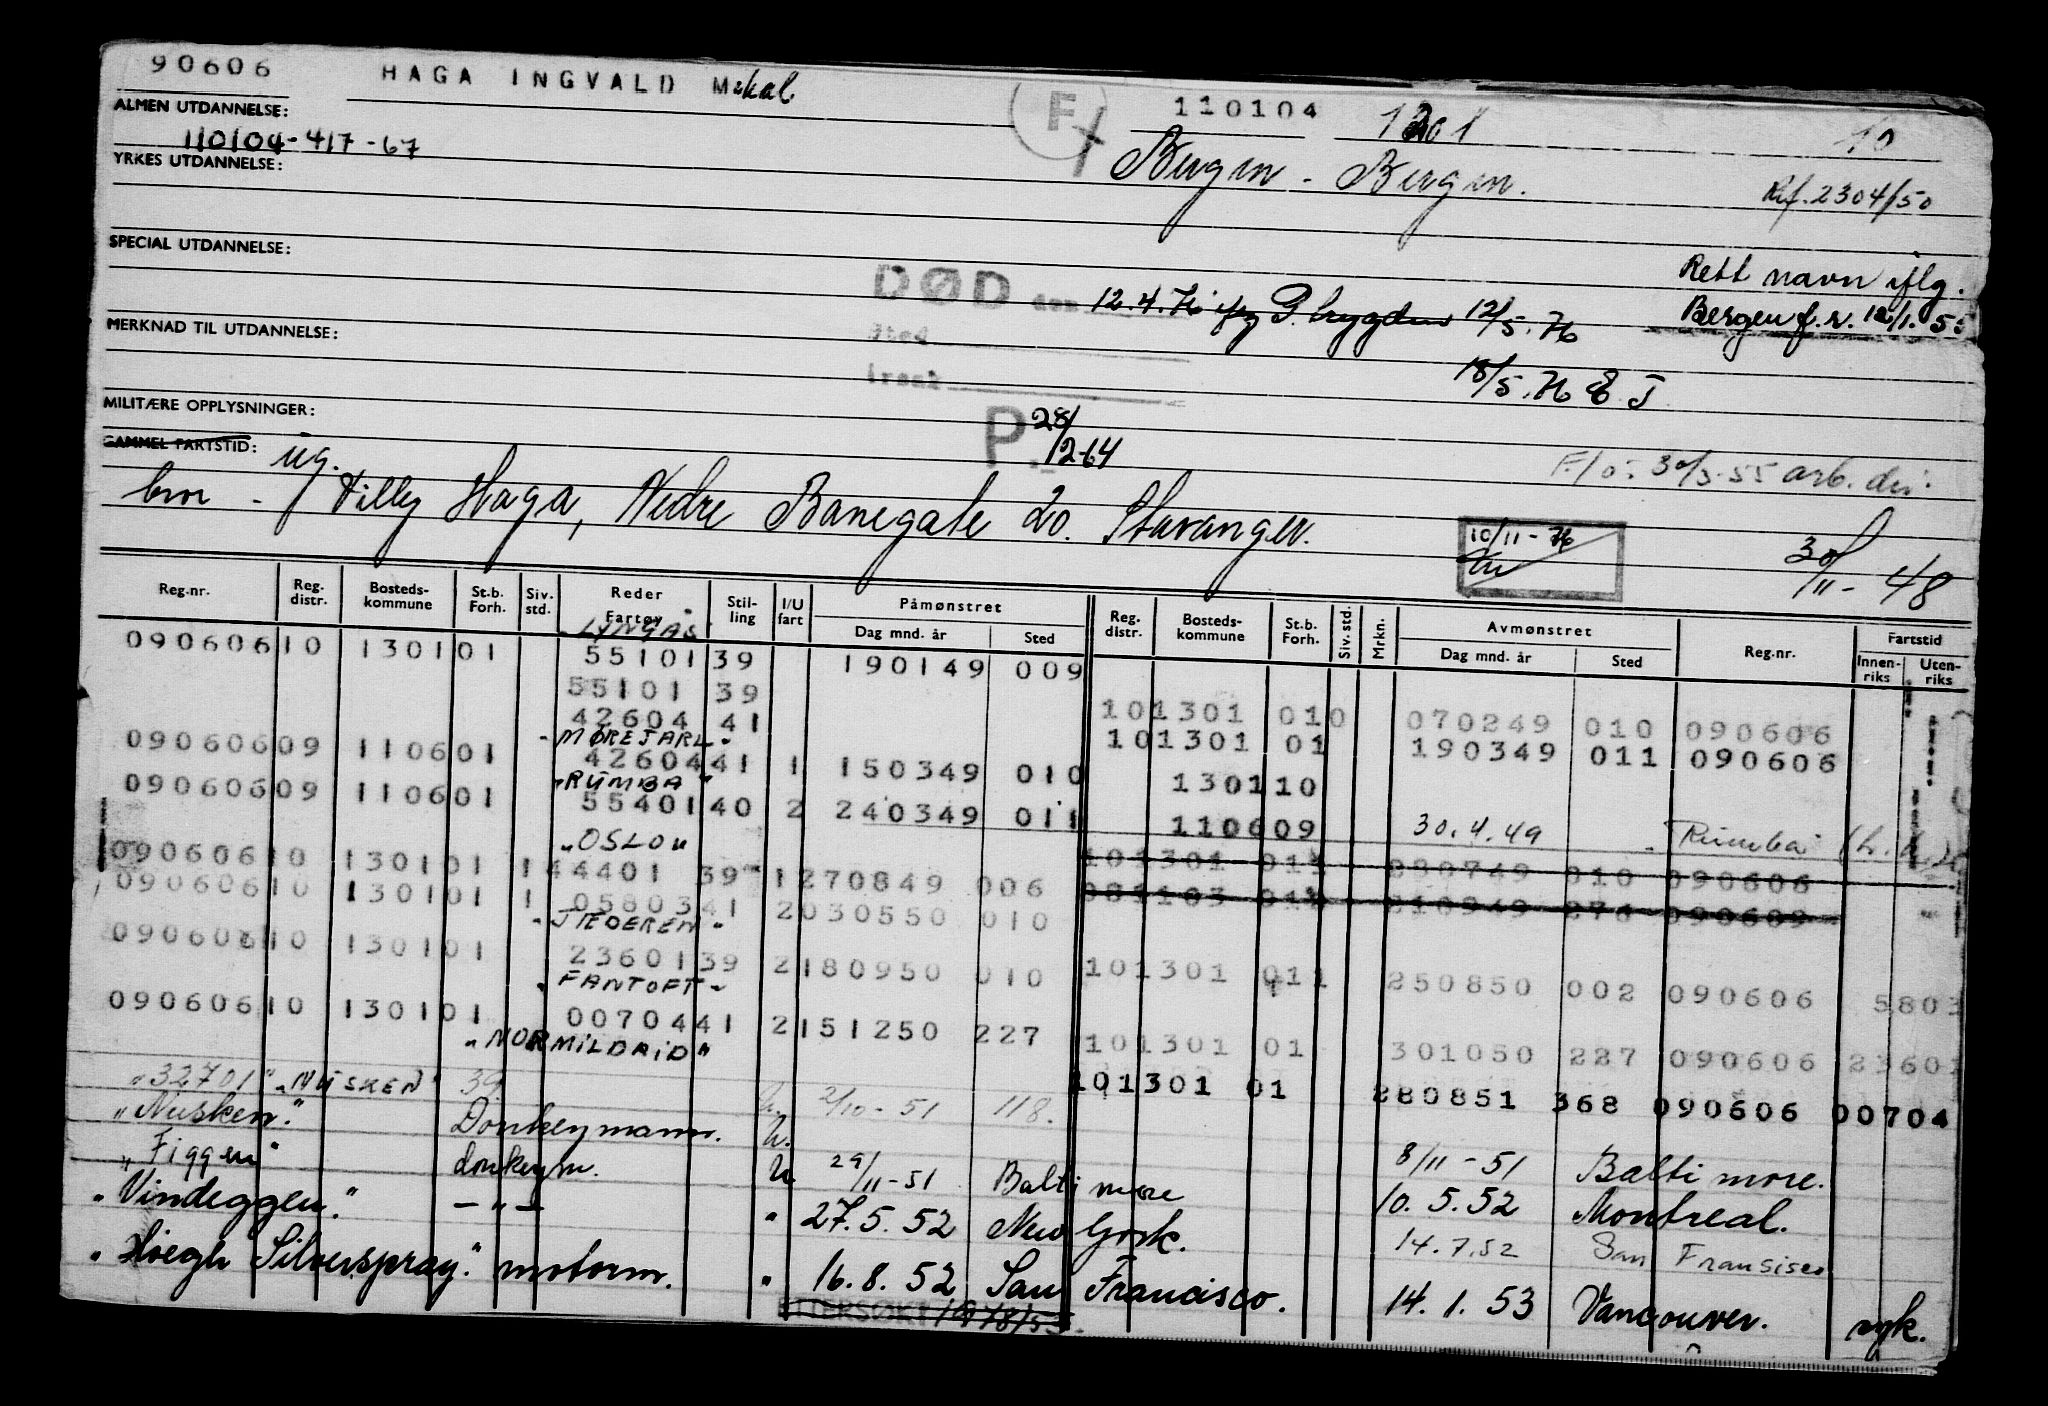 90606 HAGA INGVALD Mikal. F 110104 1301 10
ALMEN UTDANNELSE:
110104-417-67
Bergen - Bergen.
Rf. 2304/50
YRKES UTDANNELSE:
SPECIAL UTDANNELSE:
Rett navn iflg.
DØD den 12.4.76 iflg P. bryggden 12/5.76
Bergen f.r. 12/1.55
MERKNAD TIL UTDANNELSE:
Sted
Årsak
18/5.76 E J
MILITÆRE OPPLYSNINGER:
P. 28/12-64
GAMMEL FARTSTID: ug.
30/3-55 arb. dir.
bror - Villy Haga, Nedre Banegate 20. Stavanger.
10/11-76
30/11-48
Reg.nr. Reg. distr. Bosteds-kommune St.b. Forh. Siv. std. Reder Fartøy Stil-ling I/U fart Påmønstret Dag mnd. år Sted Reg. distr. Bosteds-kommune St.b. Forh. Siv. std. Mrkn. Avmønstret Dag mnd. år Sted Reg.nr. Fartstid Innen-riks Uten-riks
"LYNGÅS"
090606 10 1301 01 55101 39 190149 009
55101 39
42604 41 101301 010 070249 010 090606
"MØREJARL"
090606 09 1106 01 42604 41 1 150349 010 101301 01 190349 011 090606
"RUMBA"
090606 09 1106 01 55401 40 2 240349 011 130110
110609 30.4.49 "Rumba"
"OSLO"
090606 10 1301 01 1 44401 39 1 270849 006 101301 011 280749 010 090606
090606 10 1301 01 1 05803 41 2 030550 010 081103 011 210949 276 090609
"JÆDEREN"
090606 10 1301 01 23601 39 2 180950 010 101301 011 250850 002 090606 5803
"FANTOFT"
090606 10 1301 01 00704 41 2 151250 227 101301 01 301050 227 090606 23601
"NORMILDAID"
"32701" "NUSKEN" 39 2/10-51 118. 101301 01 280851 368 090606 00704
"Nusken." Donkeymann. U. 8/11-51 Baltimore.
"Figgen" donkeym. U 29/11-51 Baltimore 10.5.52 Montreal.
"Vindeggen." — " — " 27.5.52 New York. 14.7.52 San Fransisco
"Høegh Silverspray." motorm. " 16.8.52 San Francisco. 14.1.53 Vancouver. syk.
ETTERSØKT 1978/55